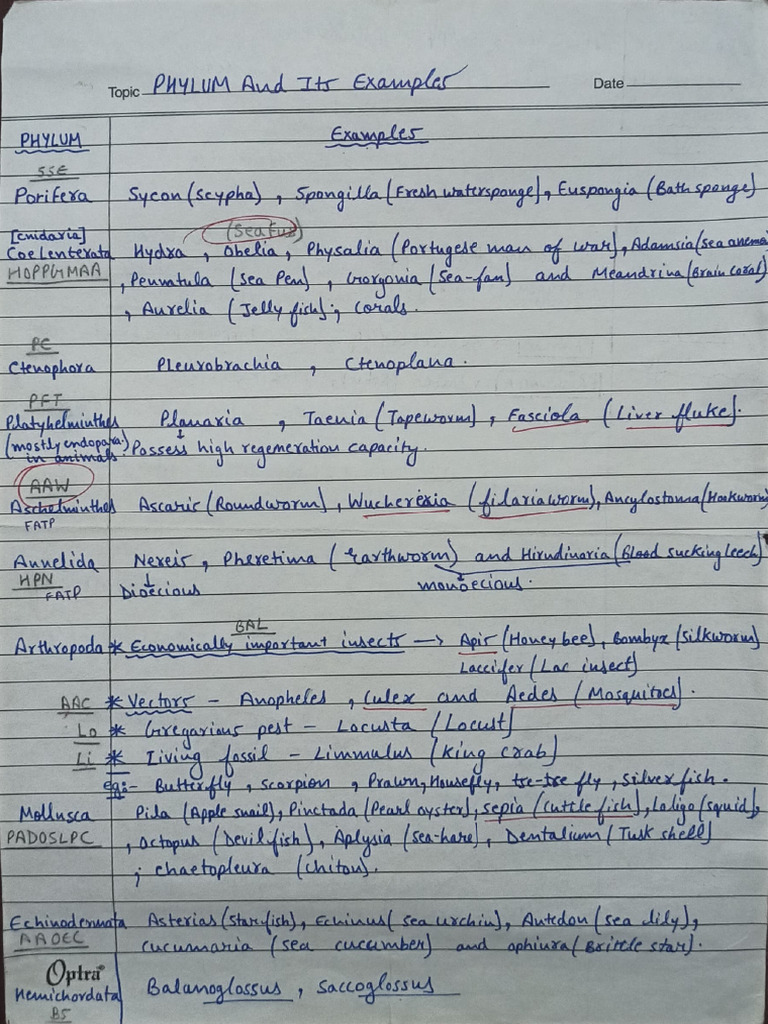 Topic PHYLUM And Its Examples Date
PHYLUM Examples
SSE
Porifera Sycon (Scypha) , Spongilla (Fresh watersponge), Euspongia (Bath sponge)
[cnidaria] (Sea Fur)
Coelenterata Hydra , Obelia , Physalia (Portugese man of war), Adamsia (sea anemo
HOPPGMAA , Pennatula (Sea Pen) , Gorgonia (Sea-fan) and Meandrina (Brain coral)
, Aurelia (Jelly fish) ; corals.
PC
Ctenophora Pleurobrachia , Ctenoplana .
PFT
Platyhelminthes Planaria , Taenia (Tapeworm) , Fasciola (Liver fluke).
(mostly endopara.) Possess high regeneration capacity.
in animals
AAW
Aschelminthes Ascaris (Roundworm) , Wuchereria (filariaworm), Ancylostoma (Hookworm)
FATP
Annelida Nereis , Pheretima (Earthworm) and Hirudinaria (Blood sucking leech)
HPN Dioecious monoecious.
FATP
BAL
Arthropoda * Economically important insects → Apis (Honey bee), Bombyx (Silkworm)
Laccifer (Lac insect)
AAC * Vectors - Anopheles , Culex and Aedes (Mosquitoes).
Lo * Gregarious pest - Locusta (Locust)
Li * Living fossil - Limmulus (King crab)
eg:- Butterfly , Scorpion , Prawn, Housefly, tse-tse fly , Silver fish .
Mollusca Pila (Apple snail), Pinctada (Pearl oyster), Sepia (cuttle fish), Loligo (squid),
PADOSLPC , Octopus (Devil fish) , Aplysia (sea-hare) , Dentalium (Tusk shell)
; chaetopleura (chiton).
Echinodermata Asterias (star fish), Echinus (sea urchin), Antedon (sea lily),
AAOEC cucumaria (sea cucumber) and ophiura (Brittle star).
Optra
Hemichordata Balanoglossus , Saccoglossus
BS